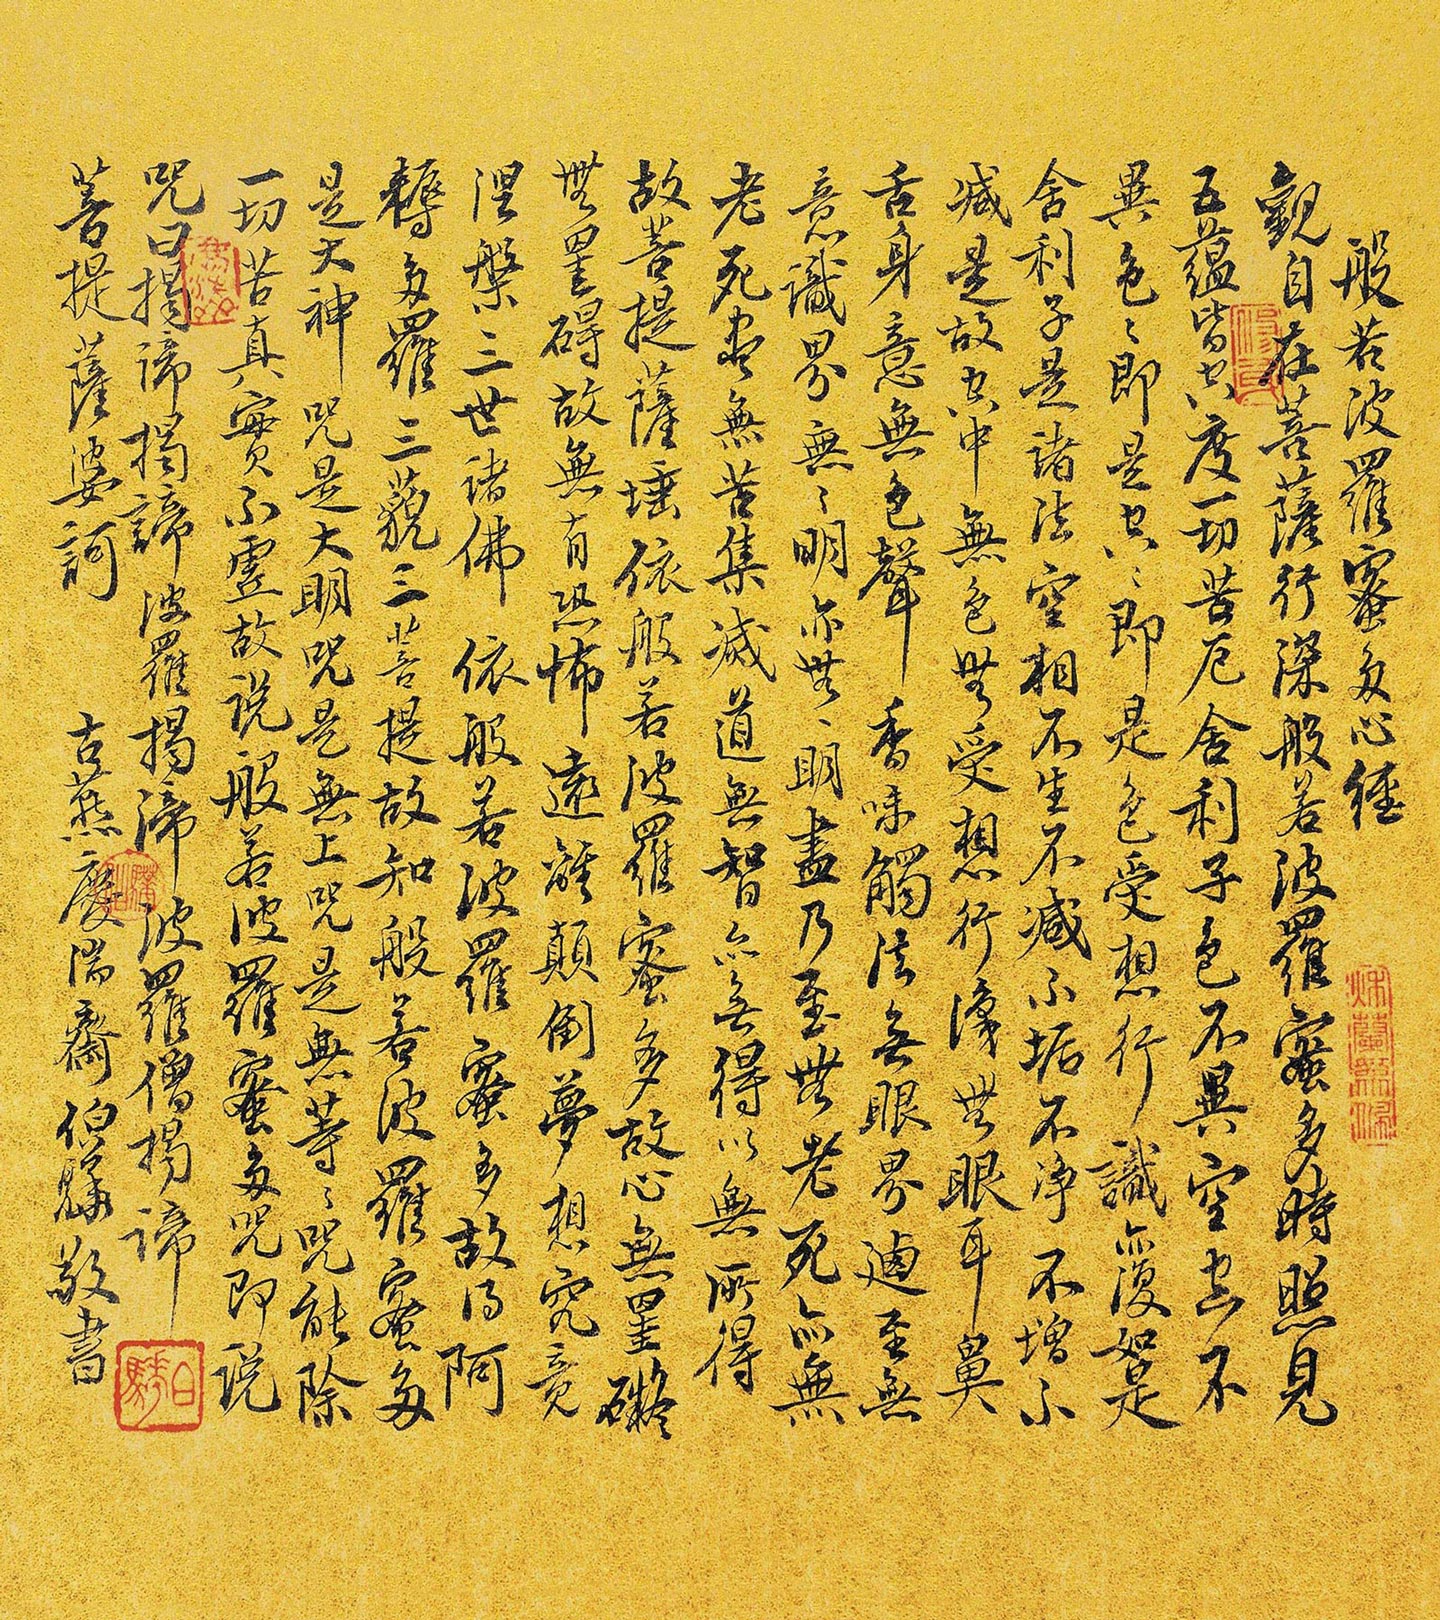 般若波羅蜜多心經
觀自在菩薩行深般若波羅蜜多時照見
五蘊皆空度一切苦厄舍利子色不異空空不
異色色即是空空即是色受想行識亦復如是
舍利子是諸法空相不生不滅不垢不淨不增不
減是故空中無色無受想行識無眼耳鼻
舌身意無色聲香味觸法無眼界乃至無
意識界無無明亦無無明盡乃至無老死亦無
老死盡無苦集滅道無智亦無得以無所得
故菩提薩埵依般若波羅蜜多故心無罣礙
無罣碍故無有恐怖遠離顛倒夢想究竟
涅槃三世諸佛依般若波羅蜜多故得阿
耨多羅三藐三菩提故知般若波羅蜜多
是大神咒是大明咒是無上咒是無等等咒能除
一切苦真實不虛故說般若波羅蜜多咒即說
咒曰揭諦揭諦波羅揭諦波羅僧揭諦
菩提薩婆訶
古燕 齋伯驥敬書